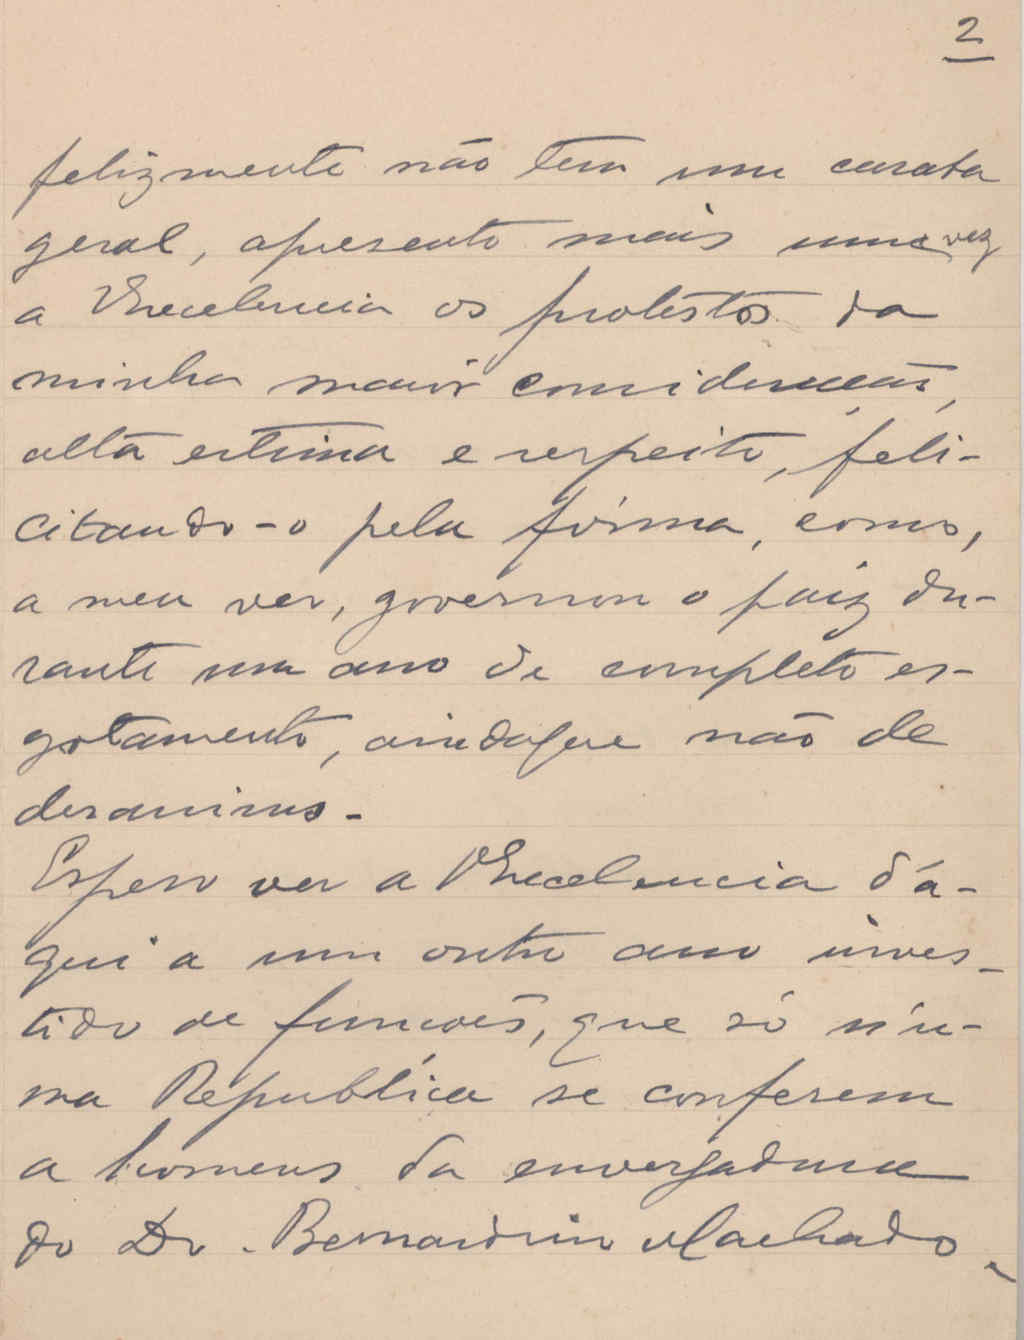 2
felizmente não tem um
geral, apresento mais uma vez
a VExcelencia os protestos da
minha maior consideração,
alta estima e respeito, feli-
citando-o pela fórma, como,
a meu ver, governou o paiz du-
rante um ano de completo es-
gotamento, aindaque não de
desanimo.
Espero ver a VExcelencia d'a-
qui a um outro ano inves-
tido de funcões, que só n'u-
ma Republica se conferem
a homens da envergadura
do Dr. Bernardino Machado.